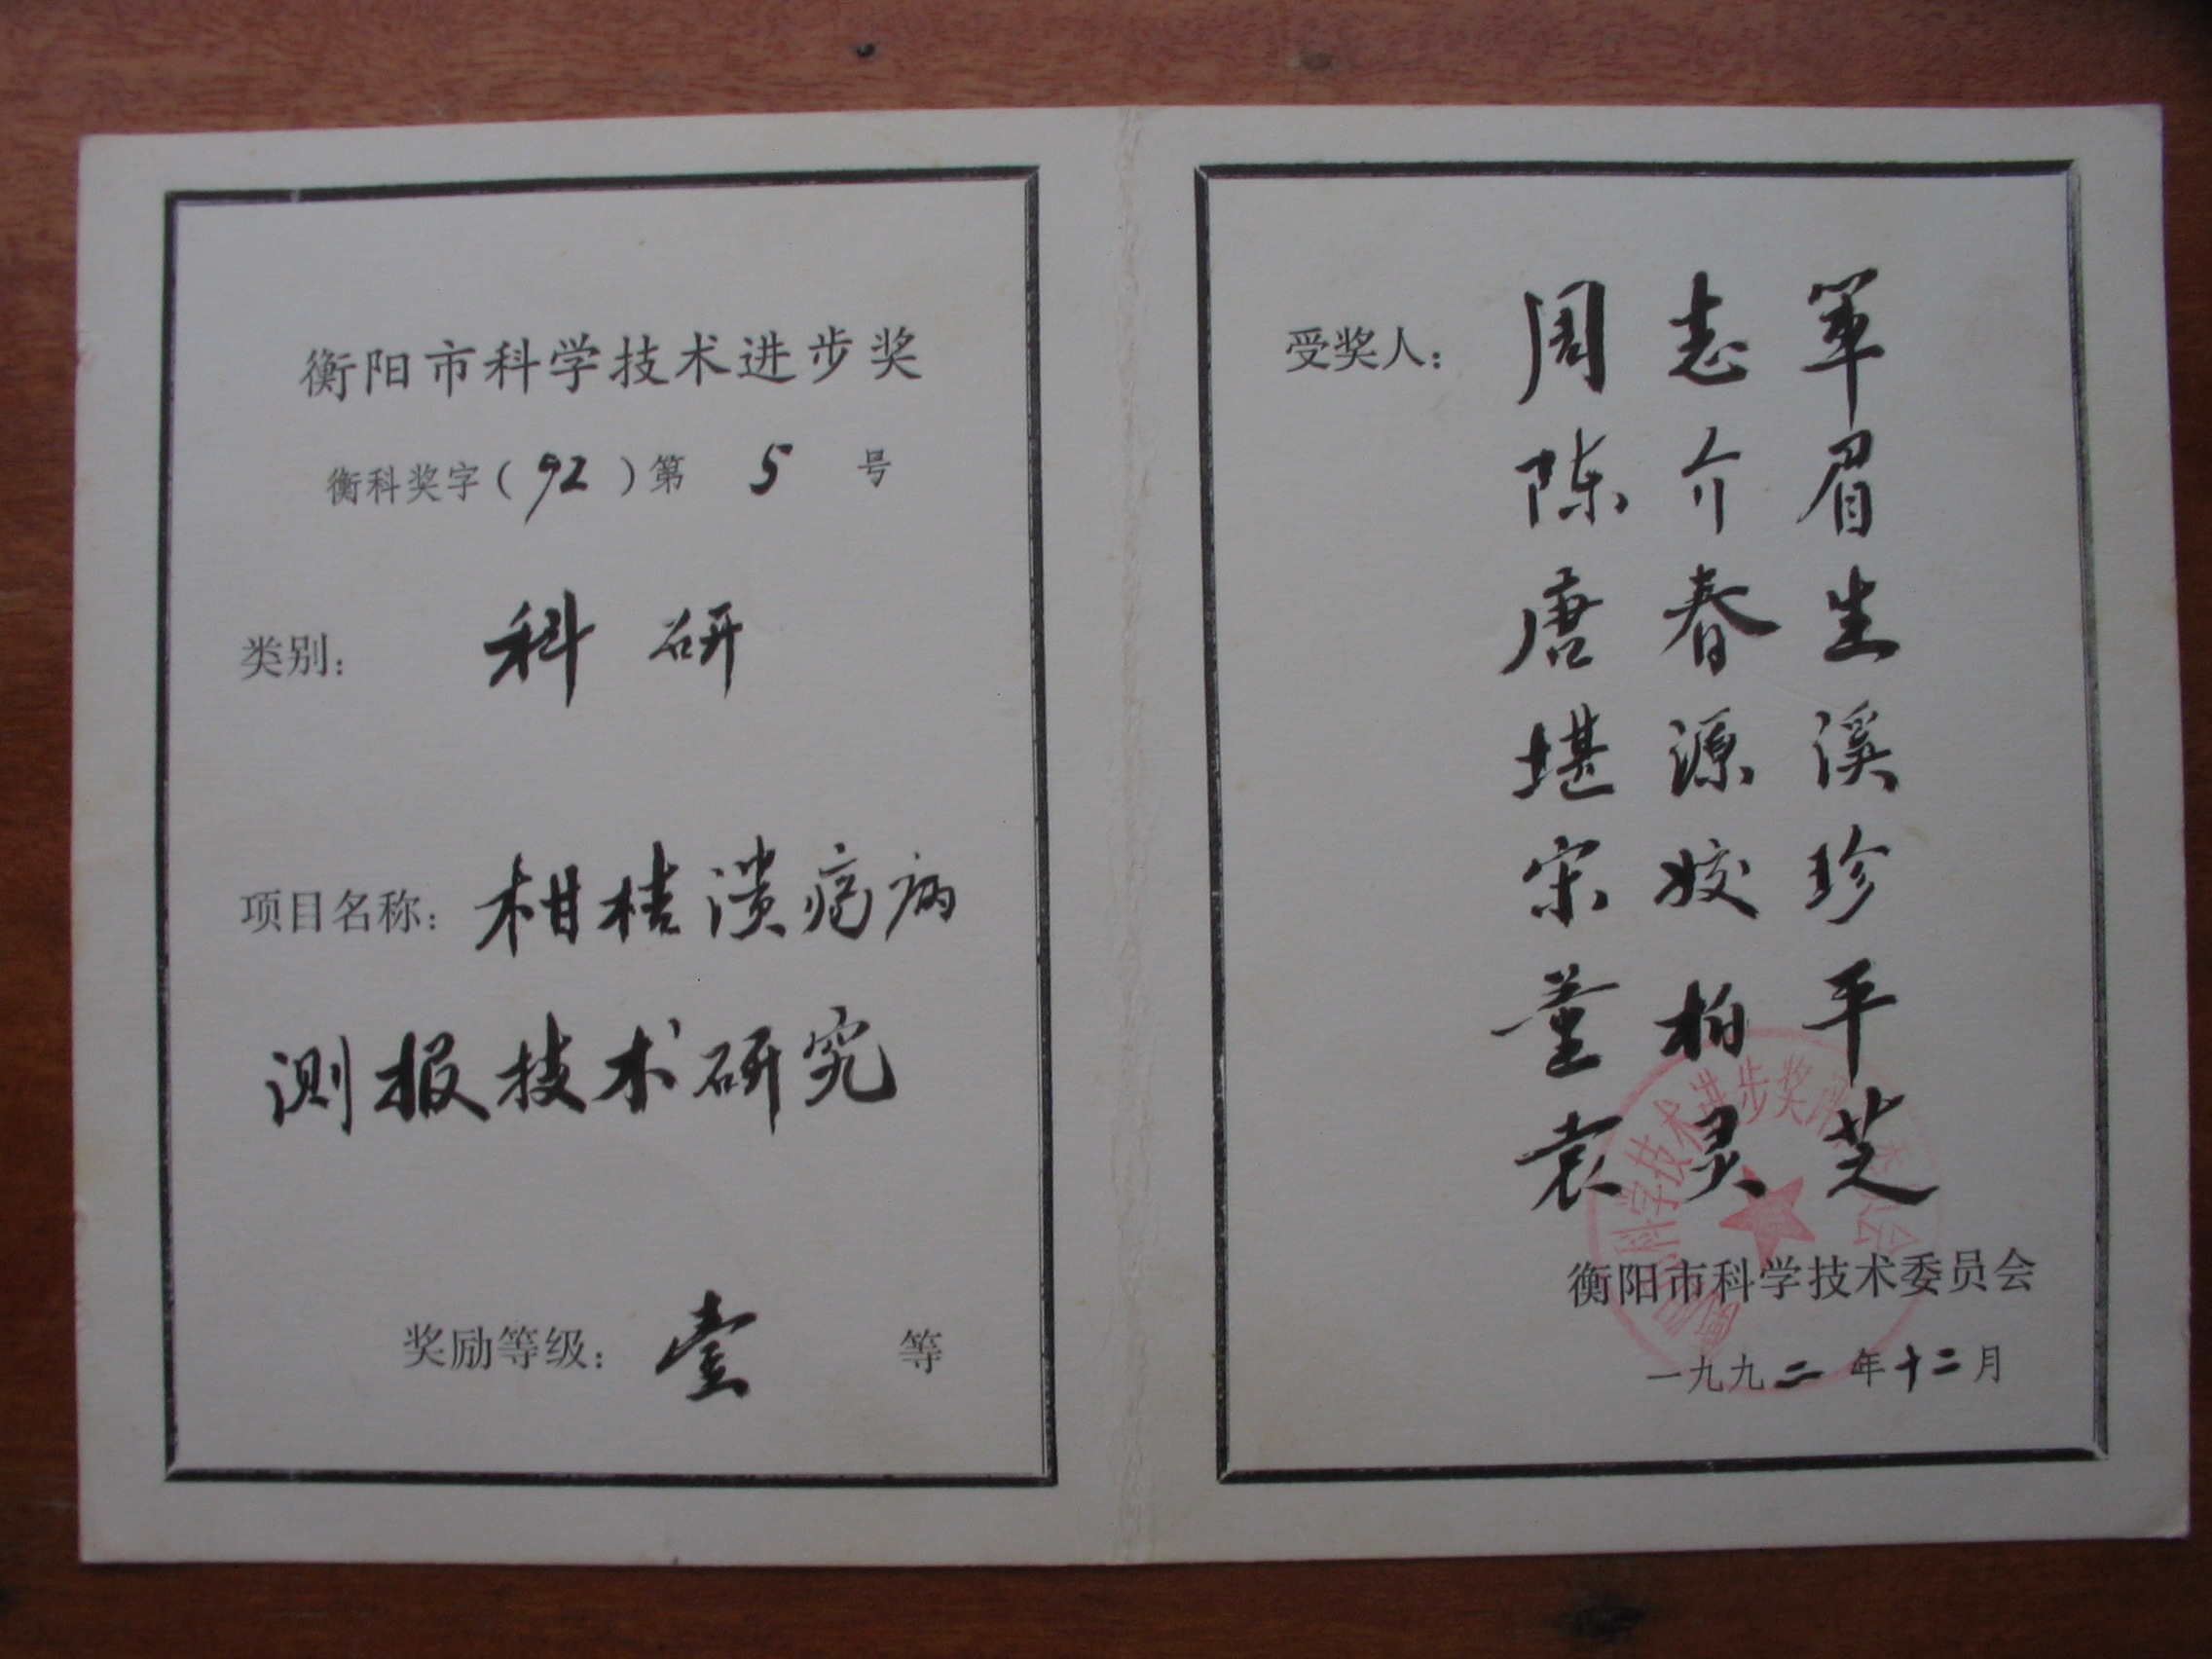 衡阳市科学技术进步奖
衡科奖字(92)第 5 号
类别: 科研
项目名称: 柑桔溃疡病
测报技术研究
奖励等级: 壹 等
受奖人: 周志军
陈介眉
唐春生
堪源溪
宋姣珍
董柏平
袁灵芝
科学技术进步奖
衡阳市科学技术委员会
一九九二年十二月